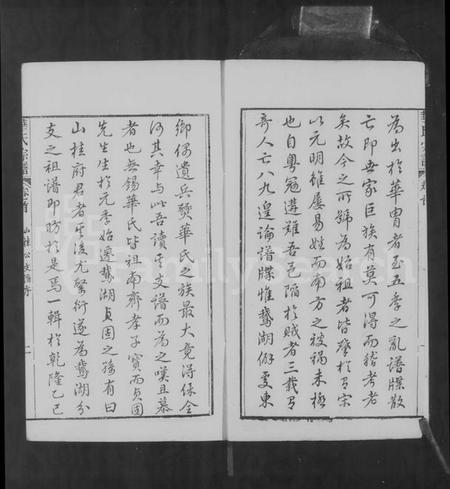 為出於華胄者至五季之亂譜牒散
亡即吾家巨族有莫可得而稽考者
矣故今之所號為始祖者皆肇於有宋
以元明雖屢易姓而南方之被禍未極
也自粵冦遘難吾邑陷於賊者三載有
奇人亡八九遑論譜牒惟鵞湖僻處東
鄉僅遭兵燹華氏之族最大竟得保全
何其幸與此吾讀支譜而為之嘆且慕
者也無錫華氏皆祖南齊孝子寶而貞固
先生生於元季始遷鵞湖貞固之孫有曰
山桂府君者後尤繁衍遂為鵞湖分
支之祖譜即昉於是焉一輯於乾隆乙已
華氏宗譜
卷首
山桂公支譜序
二
FamilySearch